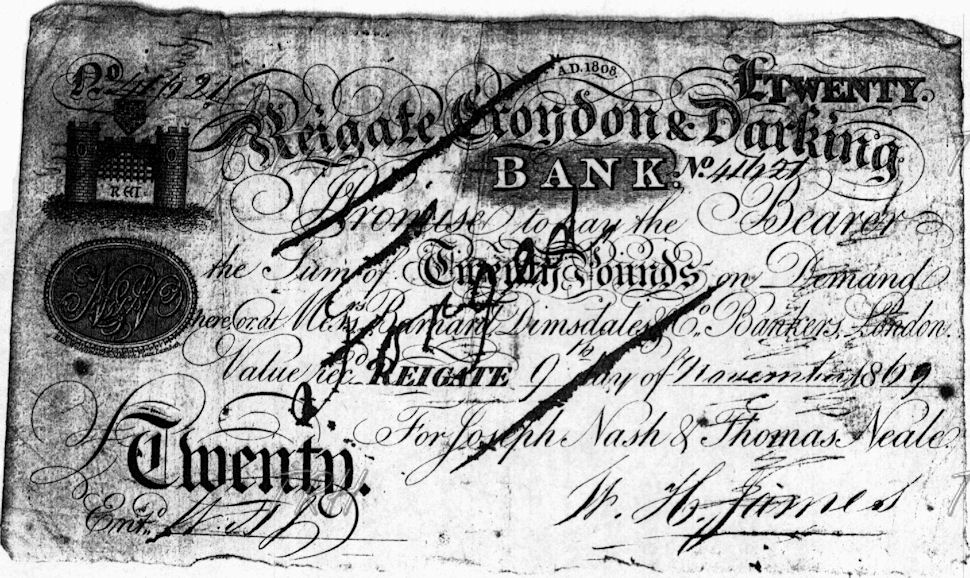 A.D. 1808.
£TWENTY.
Nº 41621
Reigate Croydon & Darking
BANK. Nº 41621
REI.
I Promise to pay the Bearer
the Sum of Twenty Pounds on Demand
here, or at Mess.rs Barnard, Dimsdale & Co. Bankers, London.
Value rec.d REIGATE 9th day of November 1869
For Joseph Nash & Thomas Neale.
Twenty.
W. H. James
Ent.d